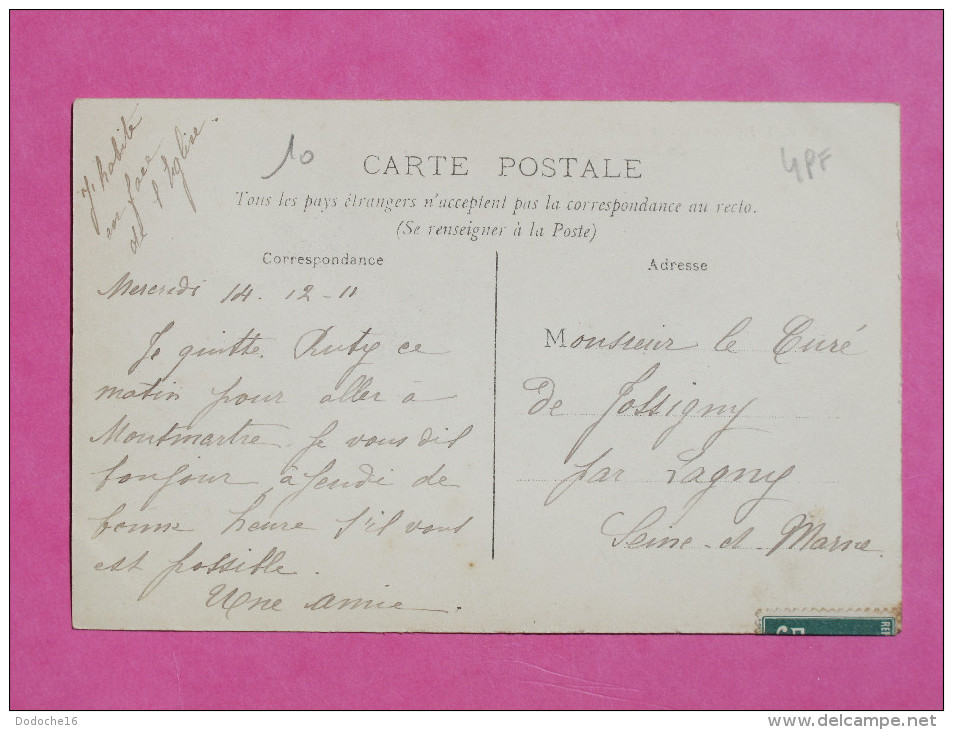 J'habite
en face
de l'Eglise.
10
4PF
CARTE POSTALE
Tous les pays étrangers n'acceptent pas la correspondance au recto.
(Se renseigner à la Poste)
Correspondance
Mercredi 14. 12 - 11
Je quitte ce
matin pour aller à
Montmartre. Je vous dis
bonjour, à Jeudi de
bonne heure s'il vous
est possible.
Une amie.
Adresse
Monsieur le Curé
de Jossigny
par Lagny
Seine-et-Marne.
Dodoche16
www.delcampe.net